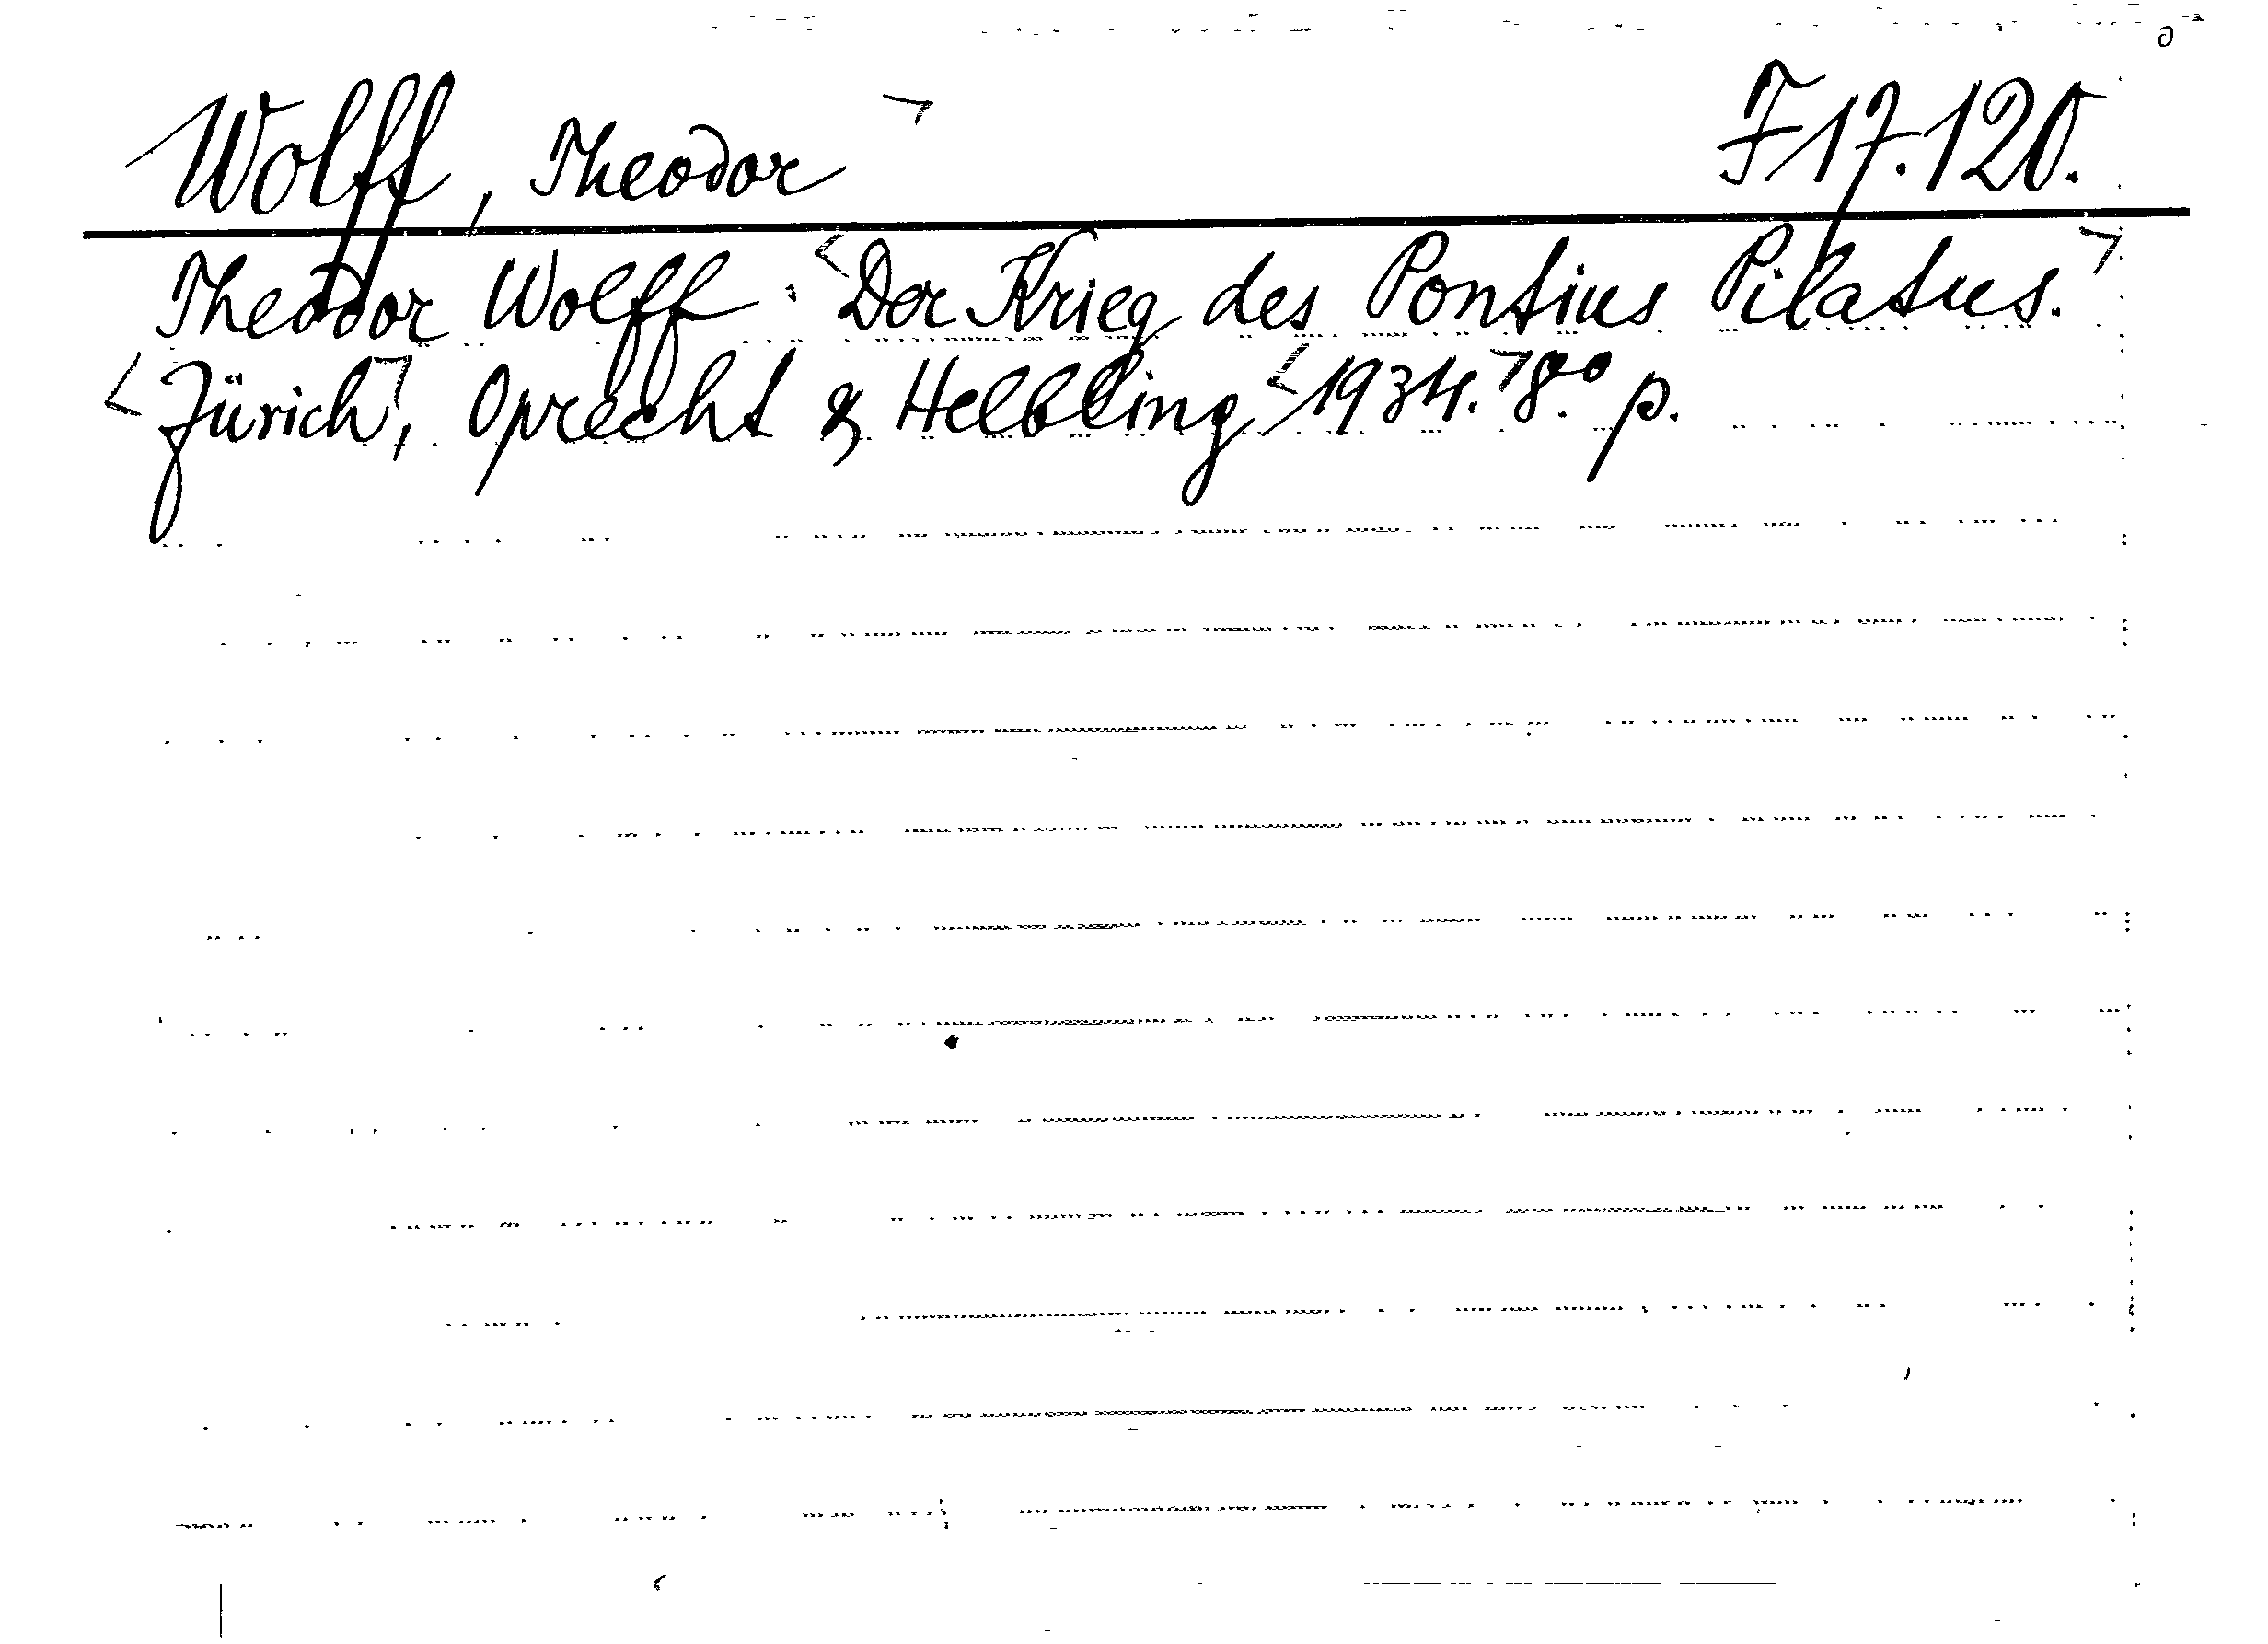 Wolff, Theodor ¬ F 17.120.
Theodor Wolff: <Der Krieg des Pontius Pilatus.¬
<Zürich¬, Oprecht & Helbling <1934.¬ 8.°° p.